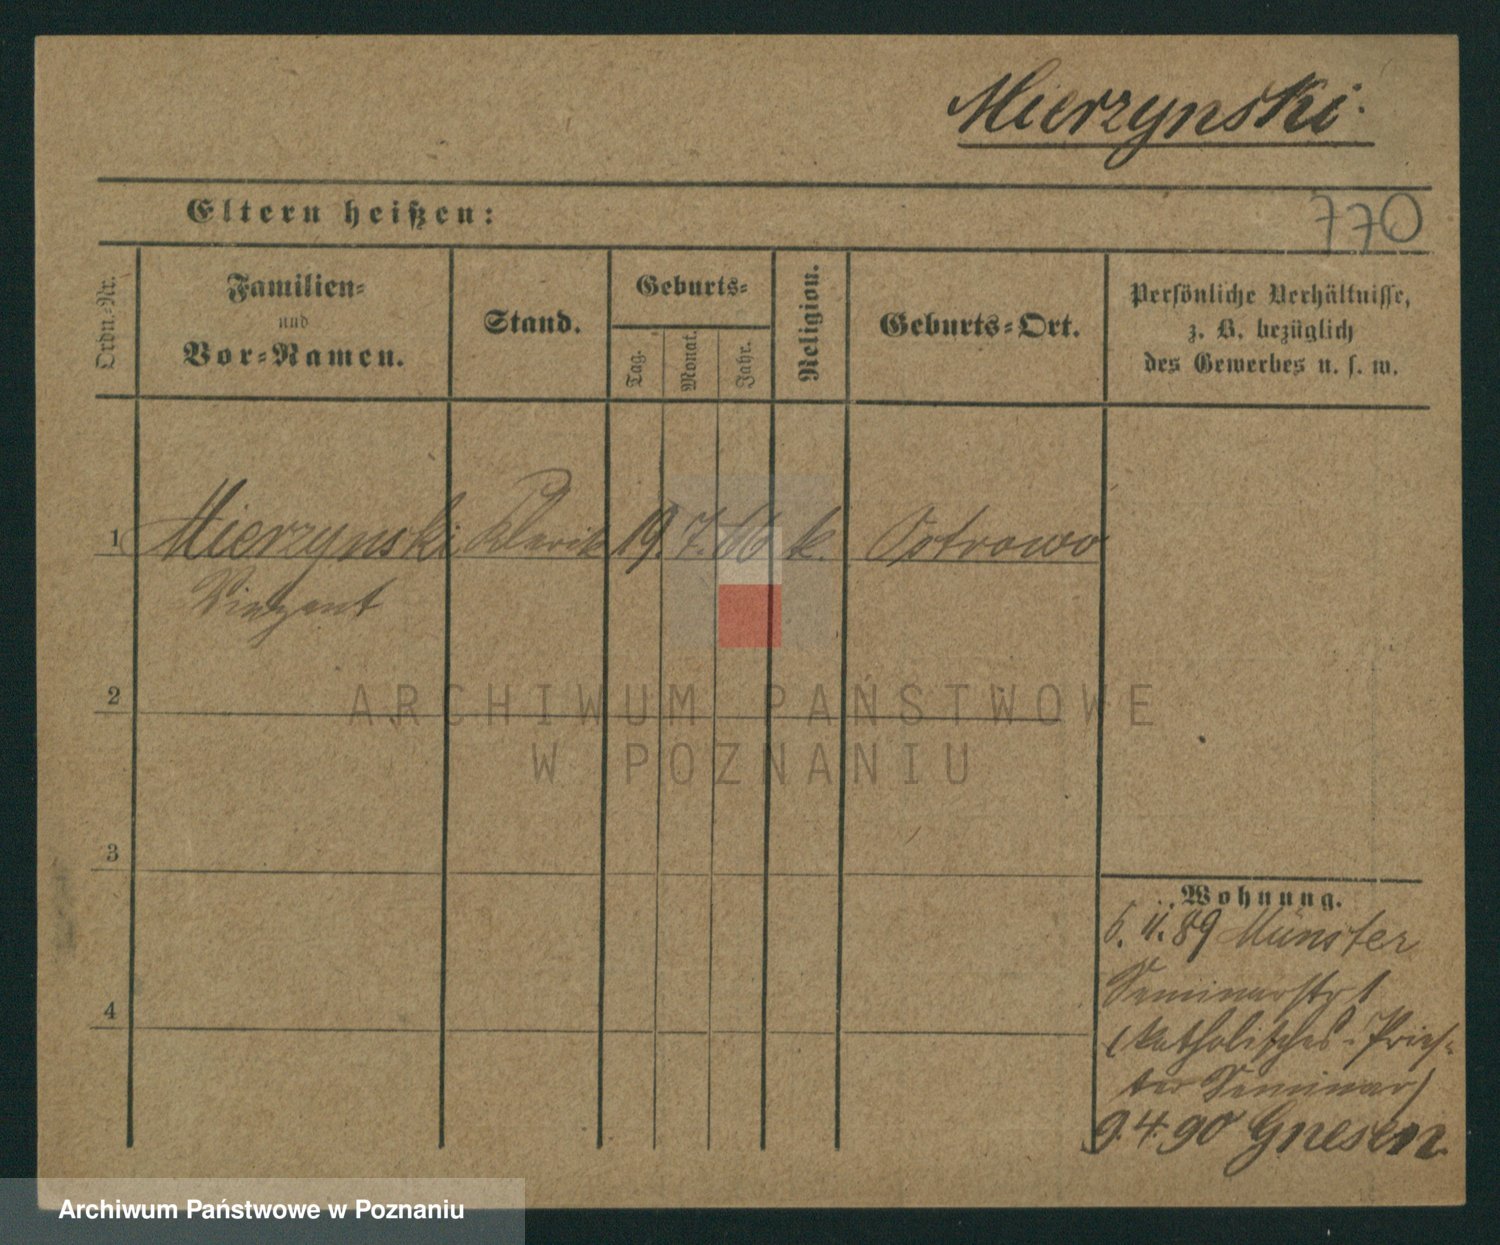 Mierzynski.
Eltern heißen:
770
Ordn.-Nr.
Familien-
und
Vor-Namen.
Stand.
Geburts-
Tag.
Monat.
Jahr.
Religion.
Geburts-Ort.
Persönliche Verhältnisse,
z. B. bezüglich
des Gewerbes u. s. w.
1 Mierzynski Klerik 19. 7. 66 k. Ostrowo
Vinzent
2
ARCHIWUM PAŃSTWOWE
W POZNANIU
3
Wohnung.
6. 11. 89 Münster
Seminarstr 1
(katholisches Pries-
ter Seminar)
4
9.4.90 Gnesen.
Archiwum Państwowe w Poznaniu